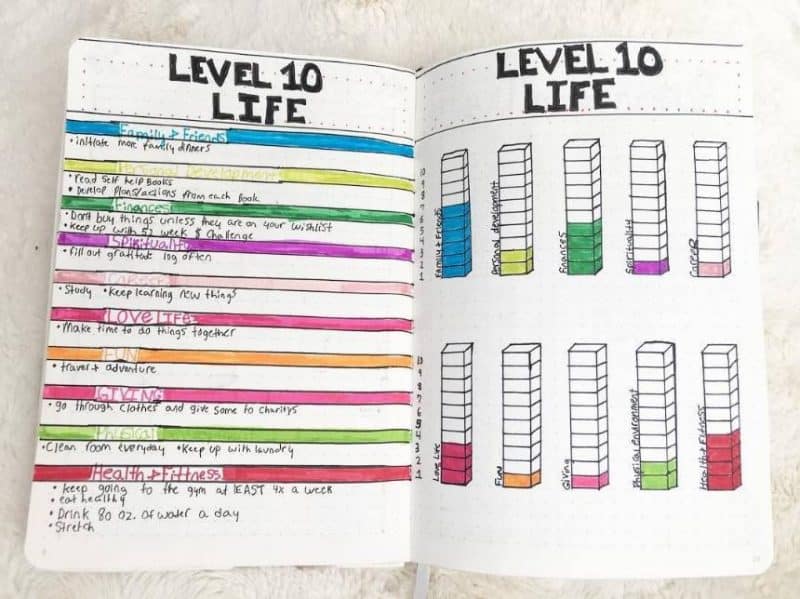 LEVEL 10
LIFE
Family + Friends
• initiate more family dinners
Personal Development
• read self help Books
• Develop plans/actions from each book
Finances
• Don't buy things unless they are on your wishlist
• Keep up with 52 week $ challenge
Spirituality
• fill out gratitude log often
Career
• Study • Keep learning new things
LOVE LIFE
• Make time to do things together
FUN
• travel + adventure
GIVING
• go through clothes and give some to charitys
Physical
• Clean room everyday • Keep up with laundry
Health + Fittness
• Keep going to the gym at lEAST 4x a week
• eat healthy
• Drink 80 oz. of water a day
• Stretch
LEVEL 10
LIFE
10
9
8
7
6
5
4
3
2
1
Family + Friends
Personal development
Finances
Spirituality
Career
10
9
8
7
6
5
4
3
2
1
Love Life
Fun
Giving
Phisical environment
Health + Fitness